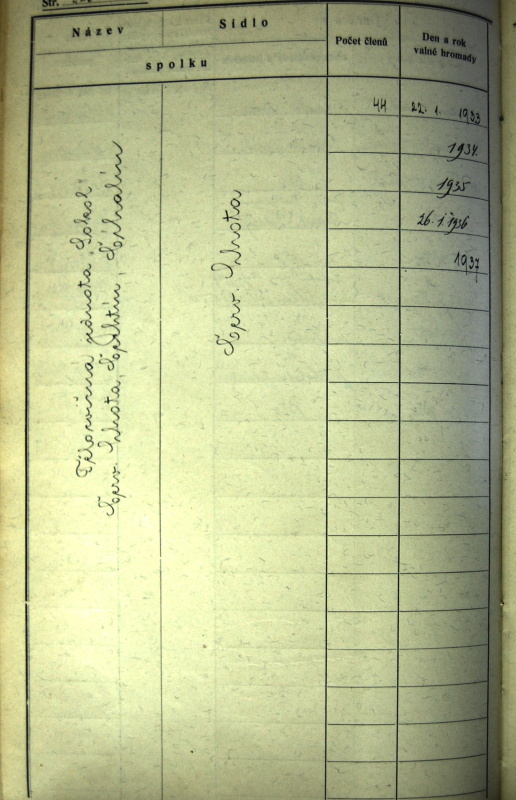 Str.
Název
Sídlo
spolku
Počet členů
Den a rok
valné hromady
Tělocvičná jednota „Sokol"
Červ. Lhota,
Červ. Lhota
44
22. 1. 1933
1934.
1935
26. 1. 1936
1937